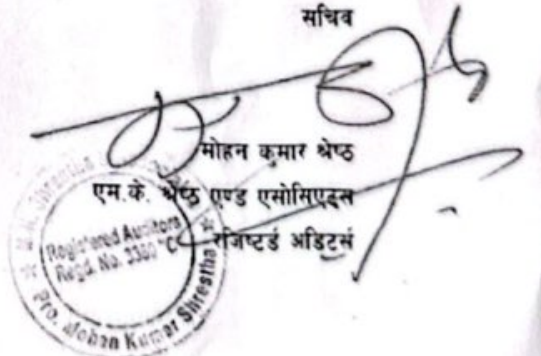 सचिव
मोहन कुमार श्रेष्ठ
एम.के. श्रेष्ठ एण्ड एसोसिएट्स
रजिष्टर्ड अडिटर्स
Shrestha
Registered Auditors
Regd. No. 3380 "C"
Pro. Mohan Kumar Shrestha